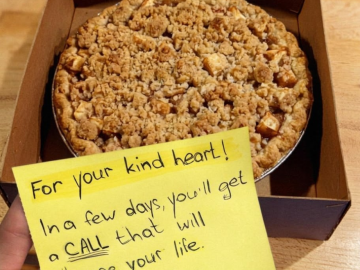 For your kind heart!
In a few days, you'll get
a CALL that will
your life.